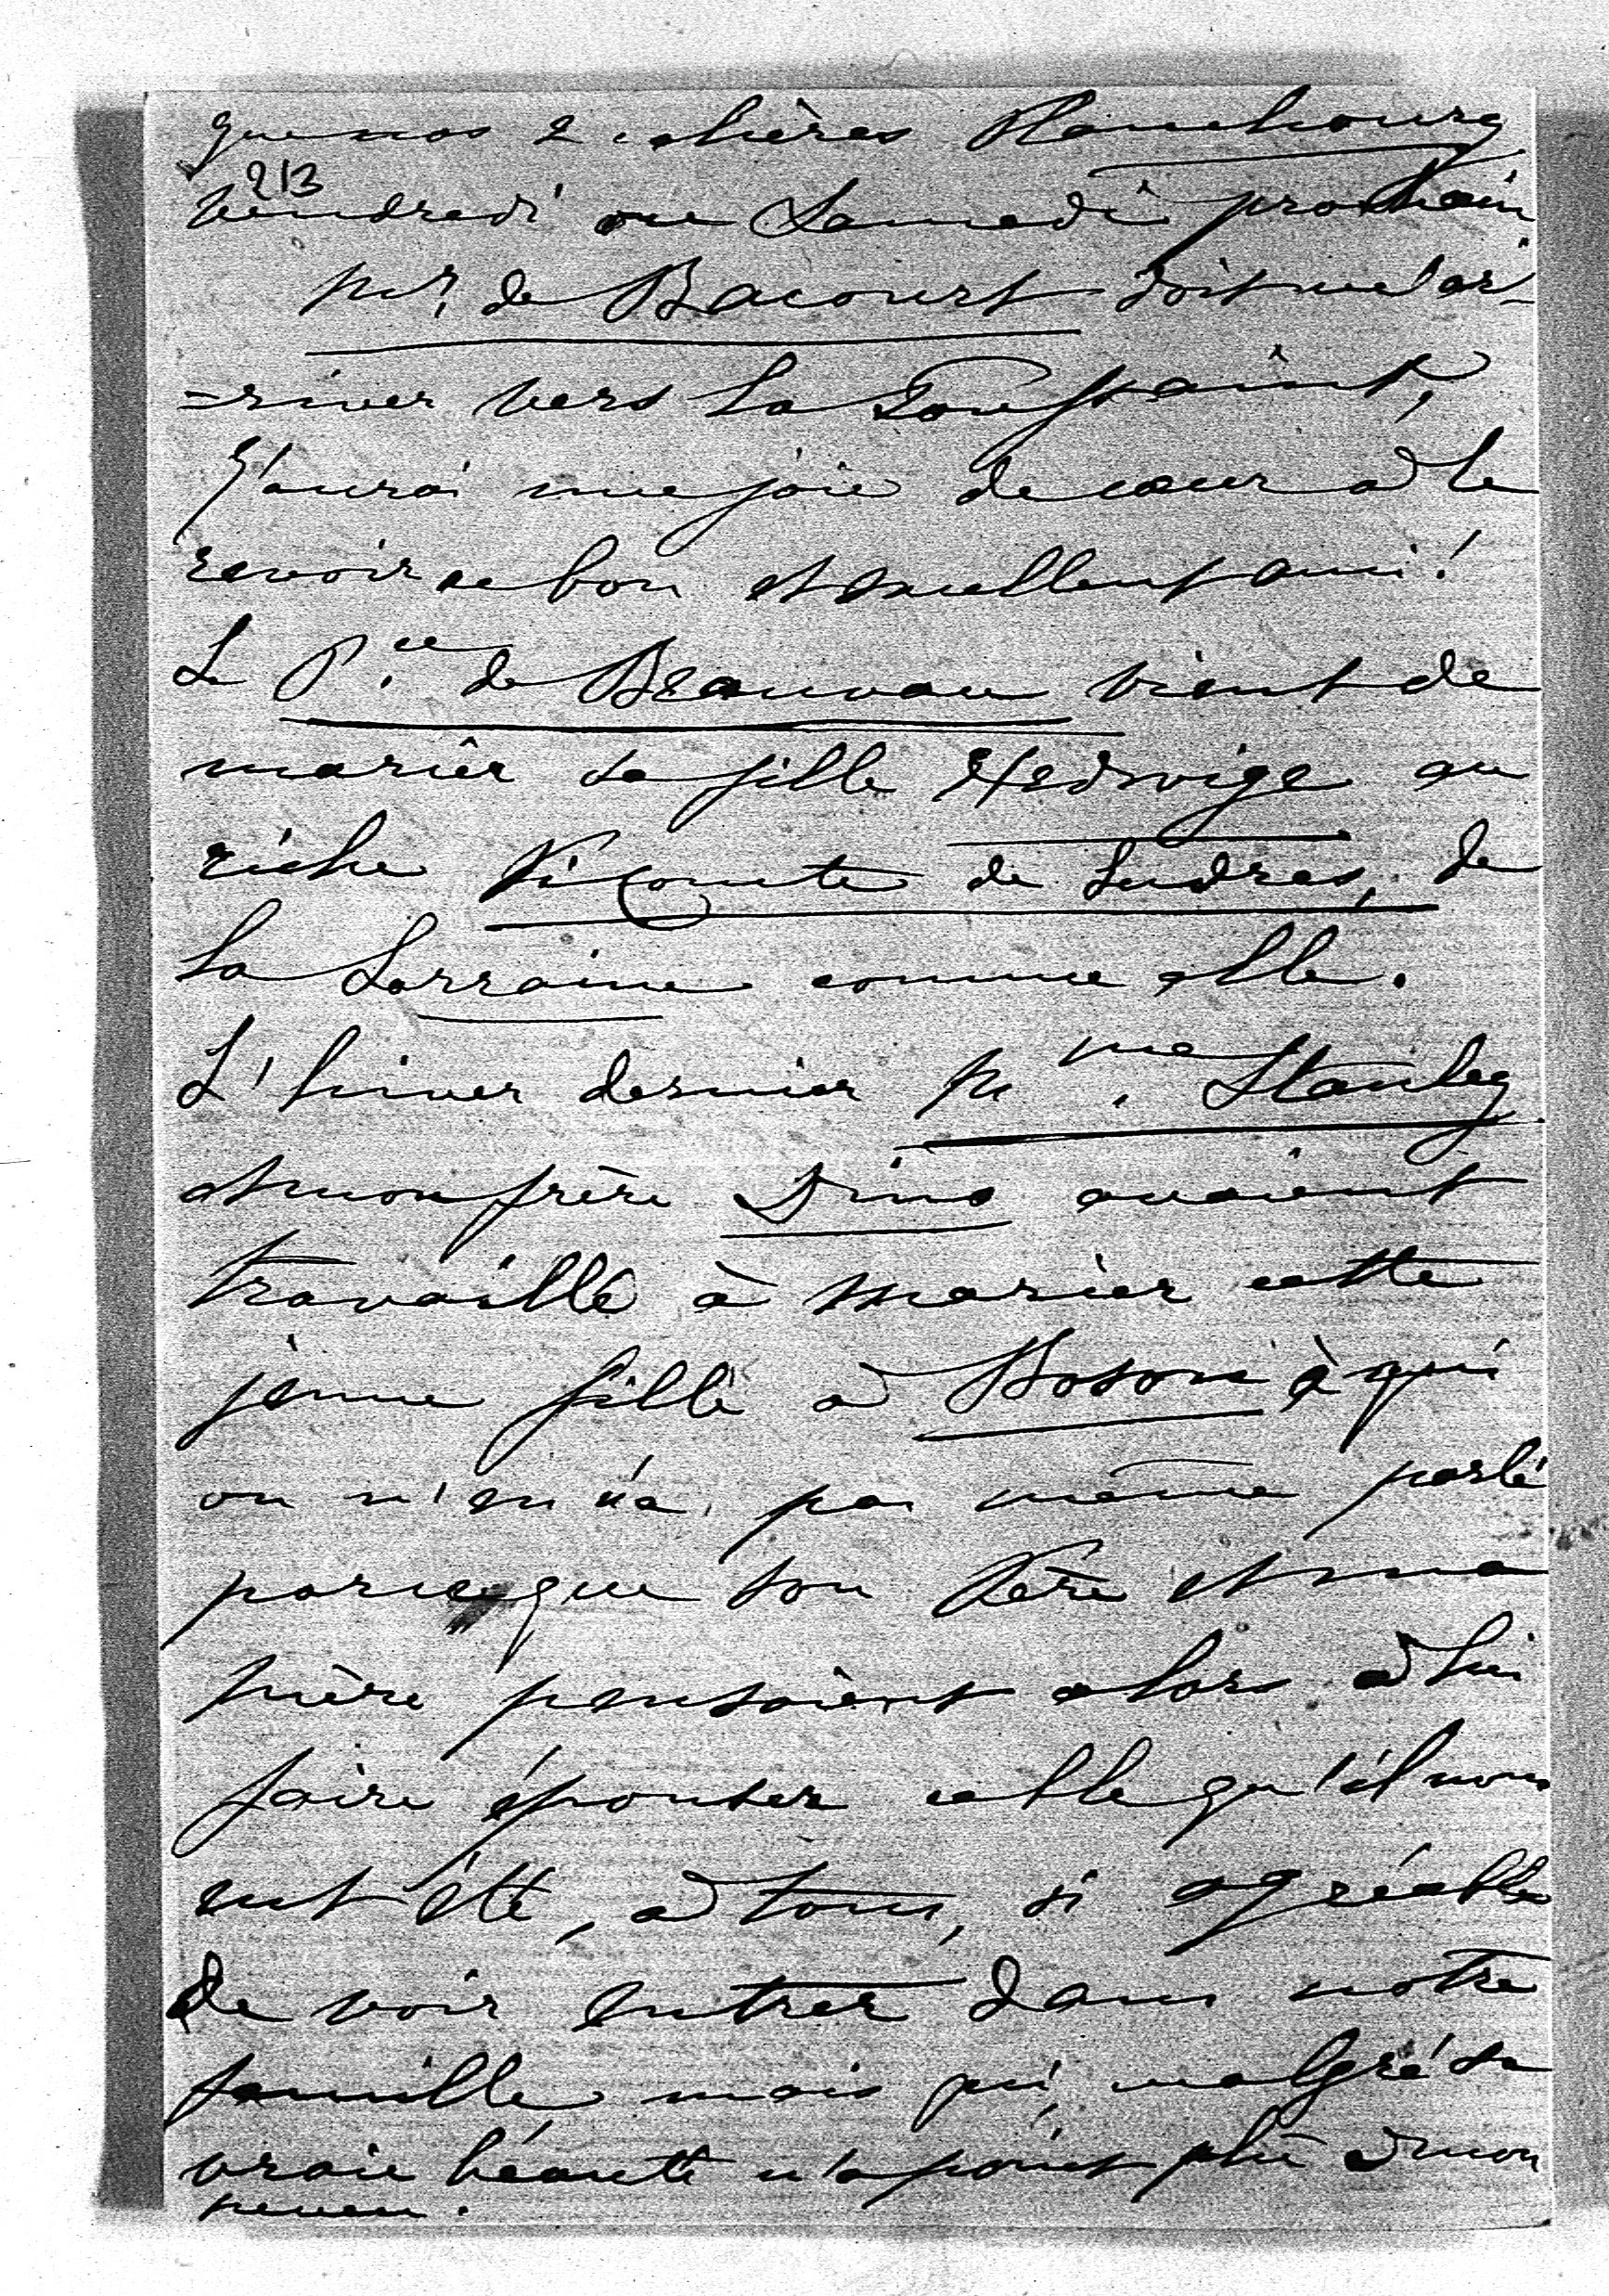 que nos 2 chères
213
Vendredi ou Samedi prochain
Mr. de Bacourt doit m'ar-
=river vers la Toussaint,
J'aurai une joie de cœur à le
revoir ce bon et excellent ami!
Le P.ce de Beauvau vient de
marier sa fille Hedwige au
riche Vicomte de Ludres, de
la Lorraine comme elle.
L'hiver dernier Mme. Stanley
et mon frère Dino avaient
travaillé à marier cette
jeune fille à Boson à qui
on n'en n'a pas même parlé
parceque son Père et ma
mère pensaient alors à lui
faire épouser celle qu'il nous
eut été, à tous, si agréable
de voir entrer dans notre
famille, mais qui, malgré sa
vraie béauté n'a point plu à mon
neveu.